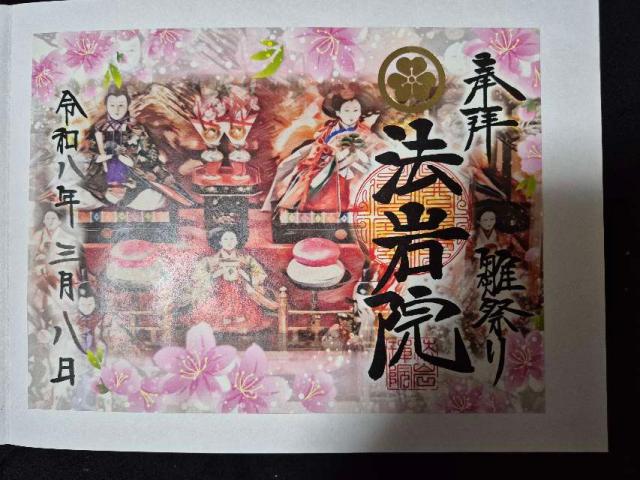 奉拝
雛祭り
法岩院
令和八年三月八日